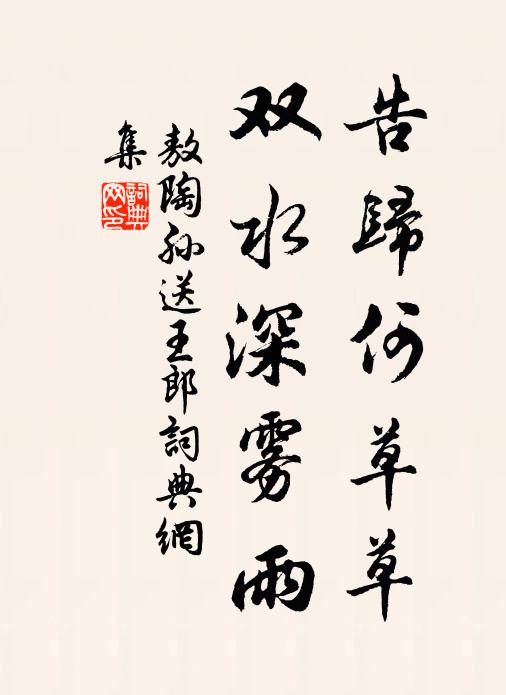 告歸何草草
双水深雾雨
敖陶孙送王郎詞典網
集
詞典
网印